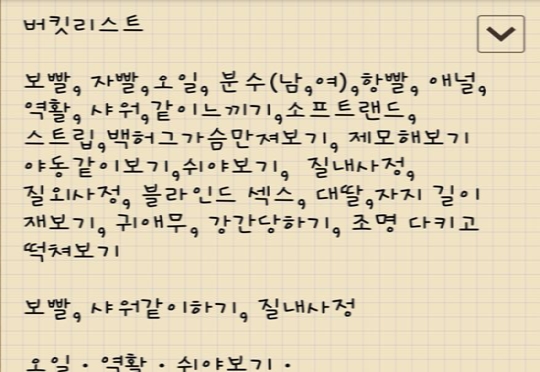 버킷리스트
보빨, 자빨,오일, 분수(남,여),항빨, 애널,
역활, 샤워,같이느끼기,소프트랜드,
스트립,백허그가슴만져보기, 제모해보기
야동같이보기,쉬야보기, 질내사정,
질외사정, 블라인드 섹스, 대딸,자지 길이
재보기, 귀애무, 강간당하기, 조명 다키고
떡쳐보기
보빨, 샤워같이하기, 질내사정
오일 · 역확 · 쉬야보기 ·